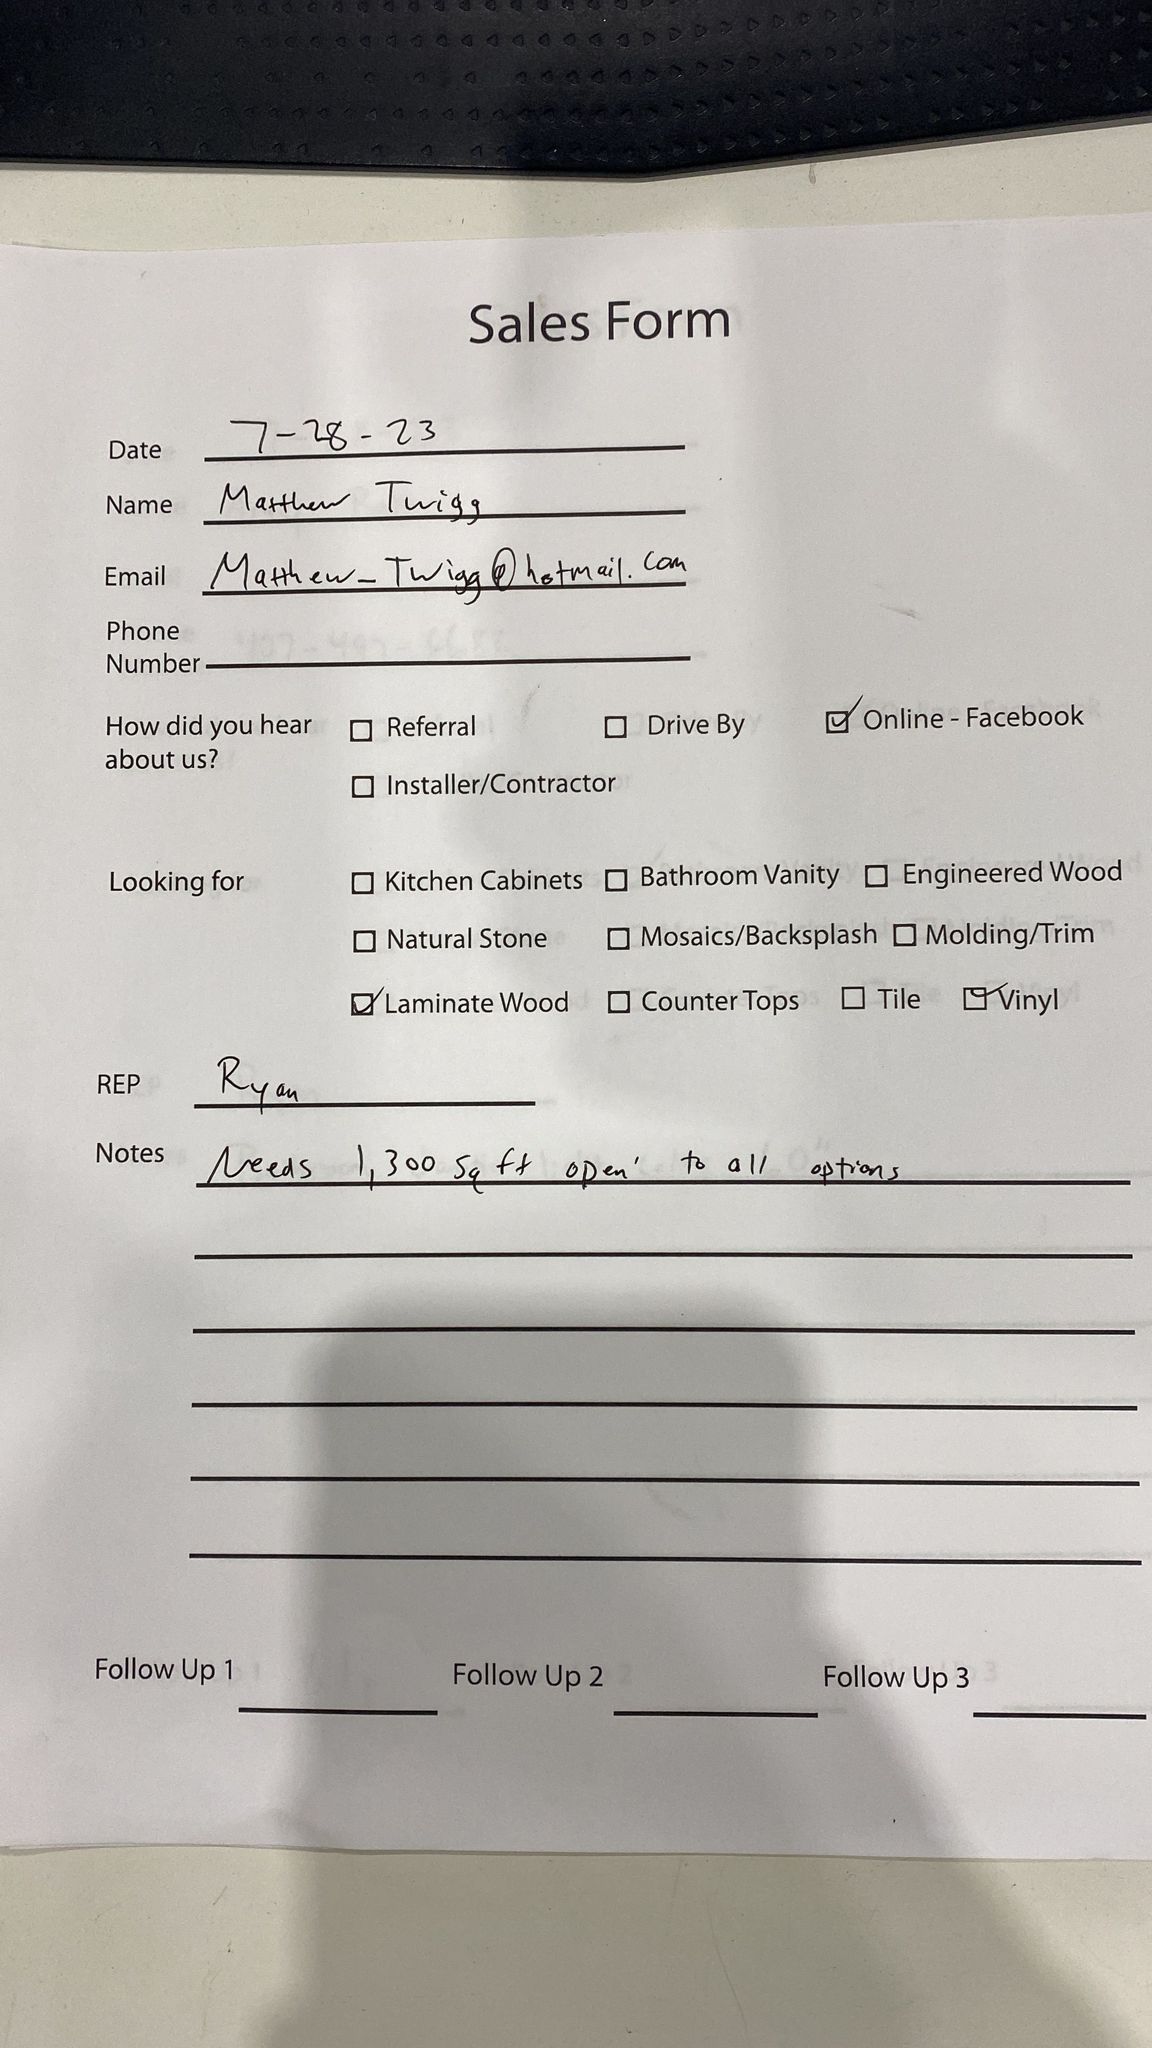 Sales Form
Date 7-28-23
Name Matthew Twigg
Email Matthew_Twigg@hotmail.com
Phone
Number
How did you hear ☐ Referral ☐ Drive By ☑ Online - Facebook
about us?
☐ Installer/Contractor
Looking for ☐ Kitchen Cabinets ☐ Bathroom Vanity ☐ Engineered Wood
☐ Natural Stone ☐ Mosaics/Backsplash ☐ Molding/Trim
☑ Laminate Wood ☐ Counter Tops ☐ Tile ☑ Vinyl
REP Ryan
Notes Needs 1,300 sq ft open to all options
Follow Up 1 Follow Up 2 Follow Up 3